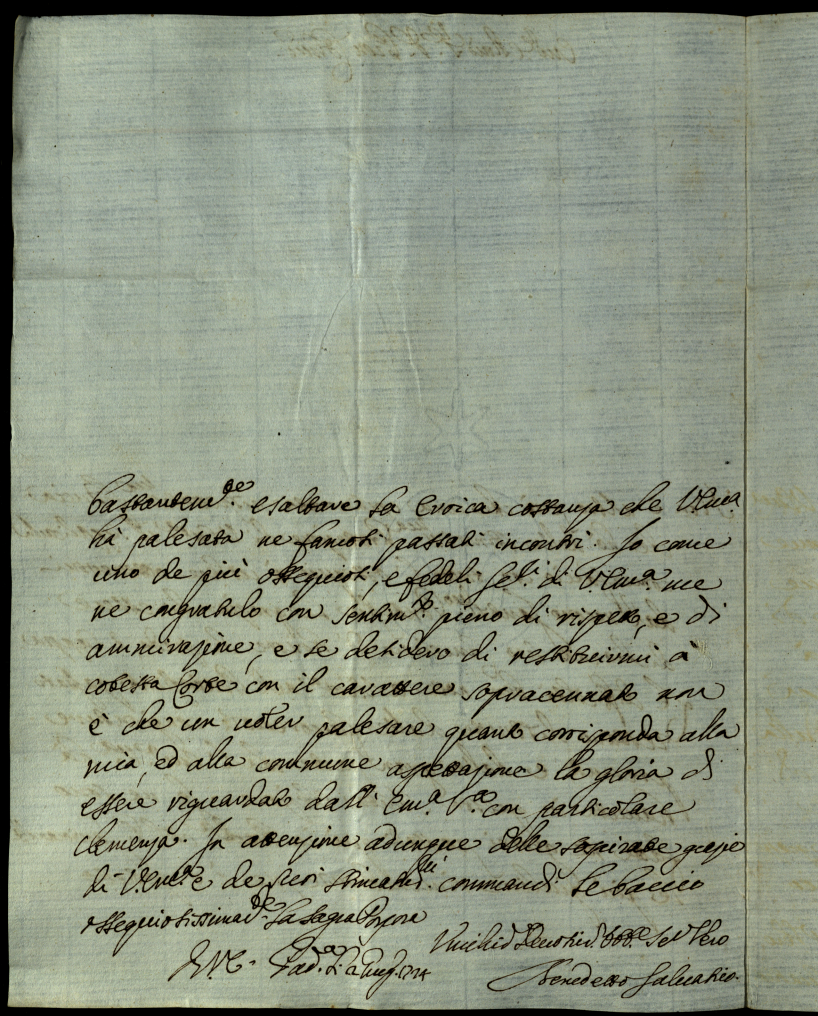 bastantem.te esaltare la eroica costanza che V. Em.a
hà palesata ne famosi passati incontri. Io come
uno de più ossequiosi, e fedeli Se.ri di V. Em.a me
ne congratulo con sentim.to pieno di rispetto, e di
ammirazione, e se desidero di restituirmi à
cotesta Corte con il carattere sopracennato non
è che un voler palesare quanto corrisponda alla
mia, ed alla commune aspettazione la gloria di
essere riguardato dall' Em.a V.a con particolare
clemenza. In attenzione adunque delle sospirate grazie
di V. Em.a e de suoi stimatis.mi commandi le baccio
ossequiosissimam.te la sagra Porpora
Pad.a 2 Aug. 1714
Umilis.o Devotis.o Obb.o Ser. Vero
Benedetto